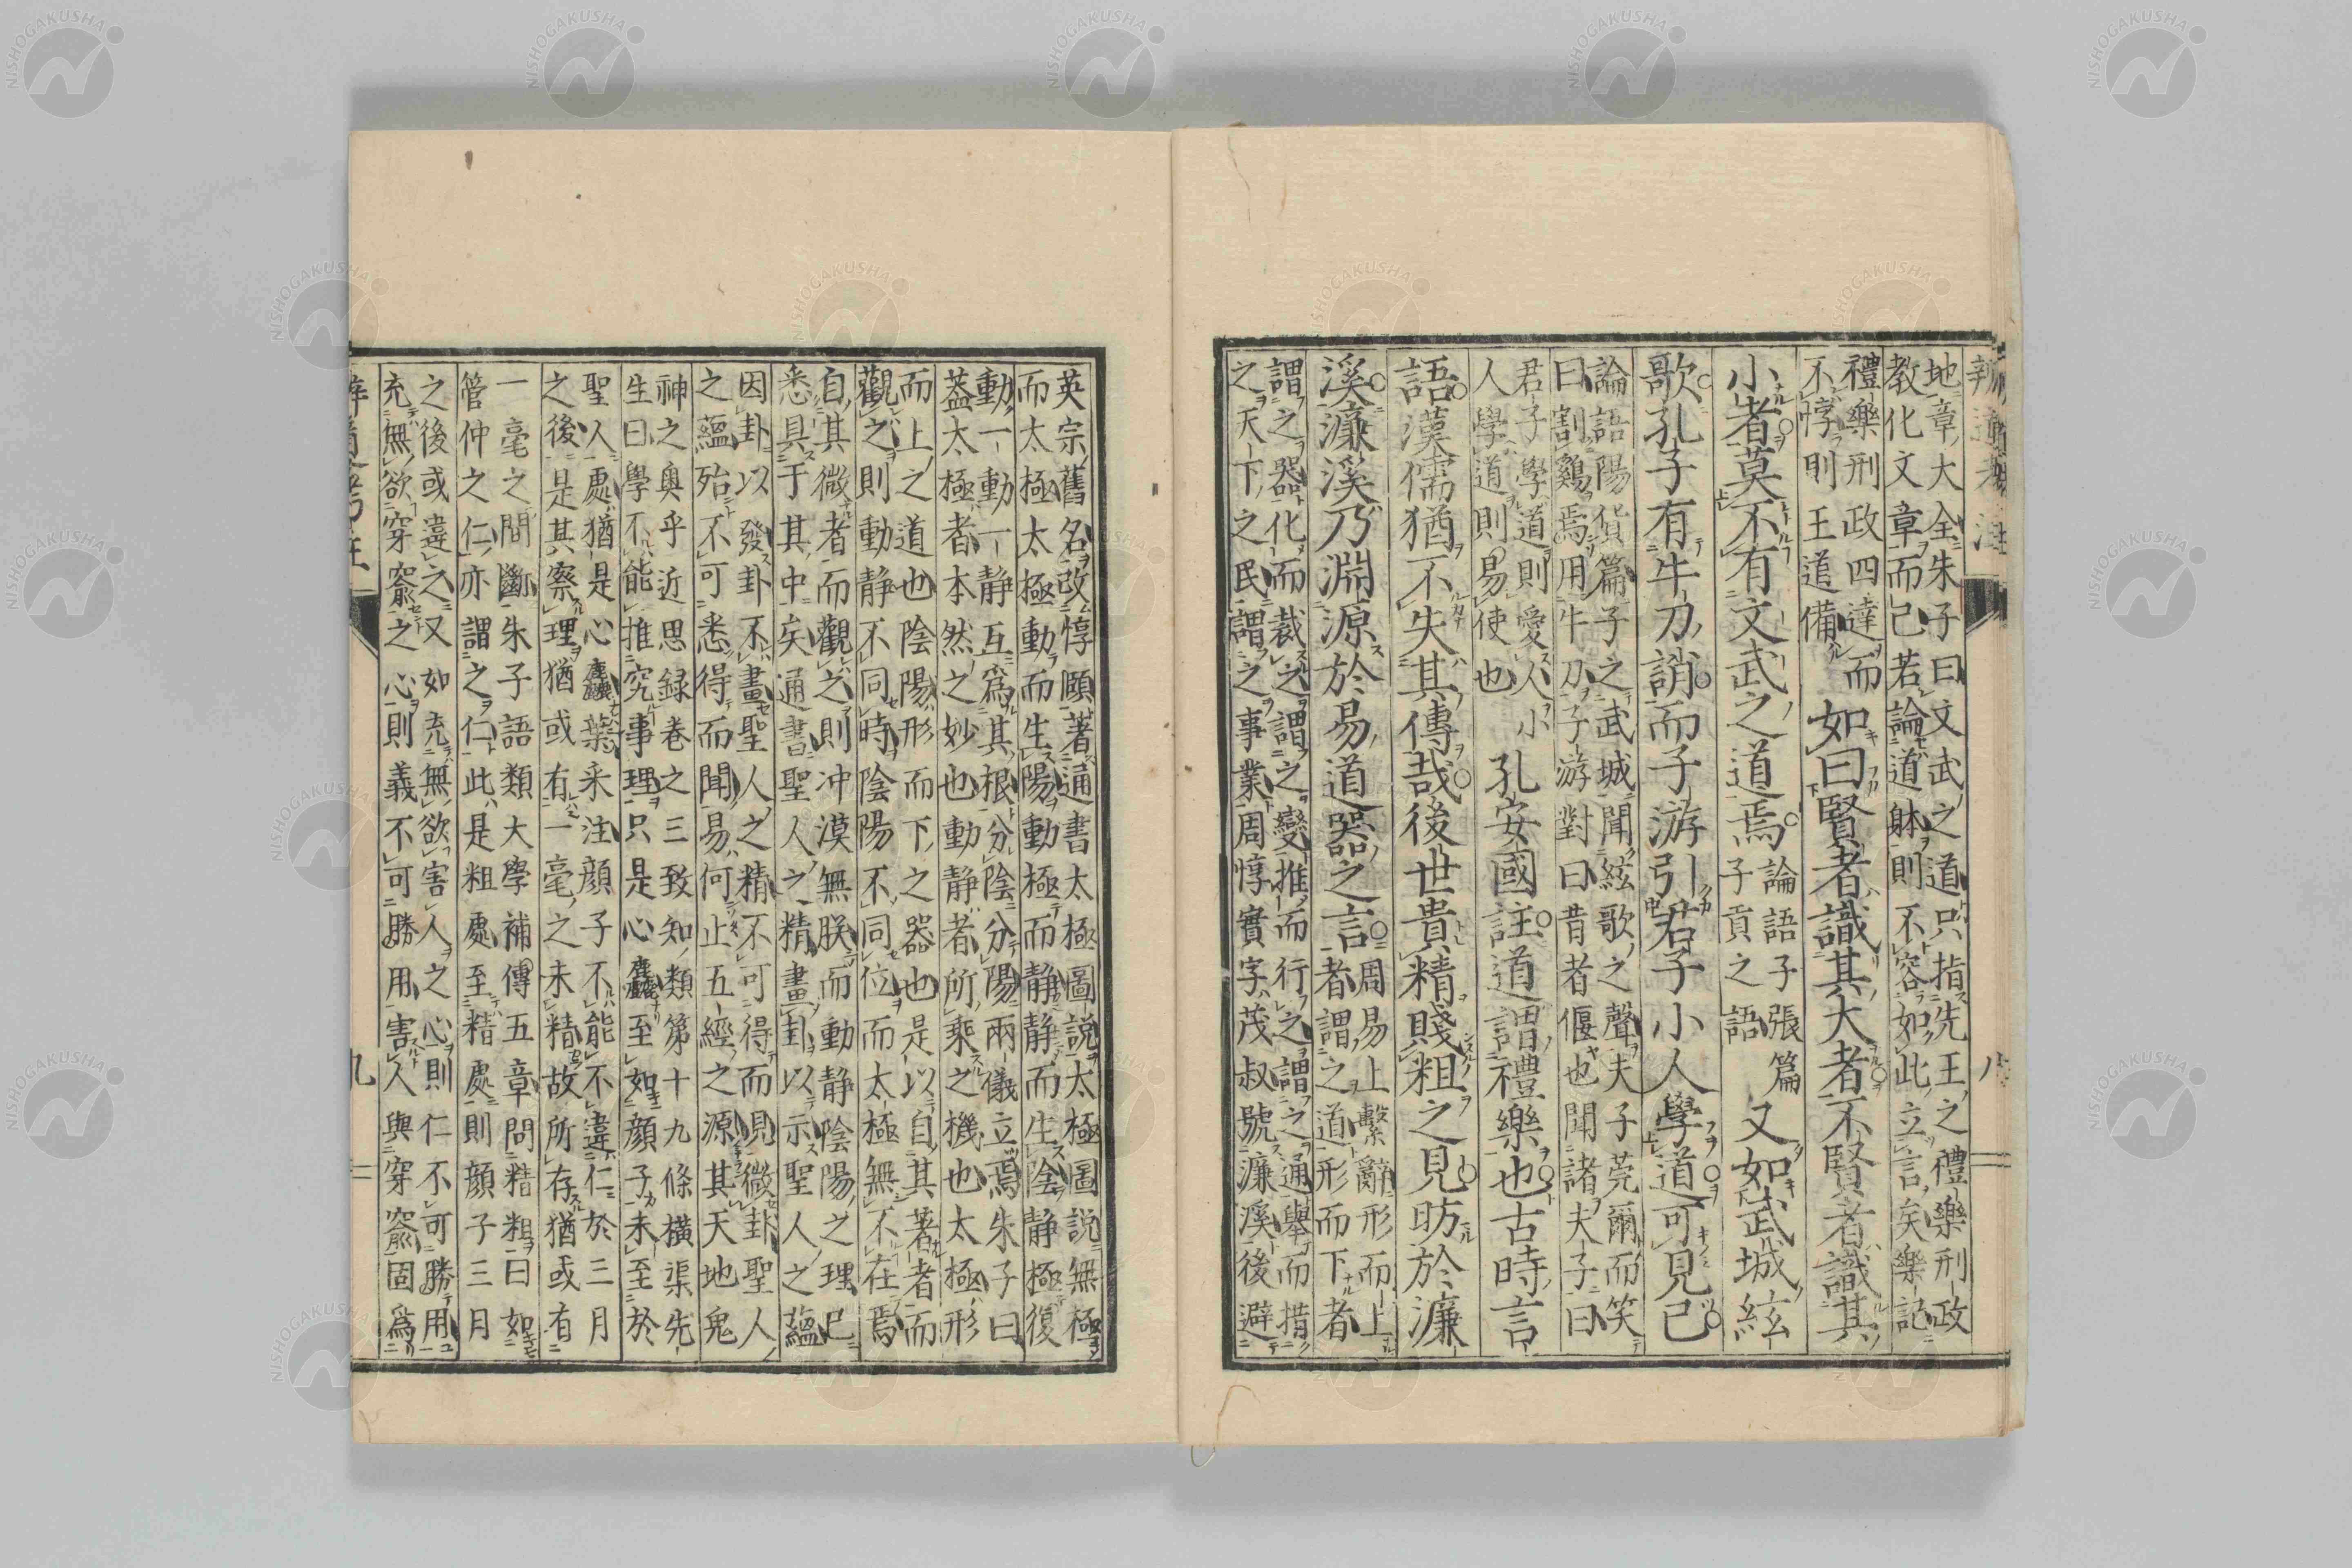 辨道考注 八
地章大全朱子曰文武之道只指先王之禮樂刑政
教化文章而已若論道躰則不容如此立言矣樂記
禮樂刑政四達而
不悖則王道備
如曰賢者識其大者不賢者識其
小者莫不有文武之道焉
論語子張篇
子貢之語
又如武城絃
歌孔子有牛刀誚而子游引君子小人學道可見已
論語陽貨篇子之武城聞絃歌之聲夫子莞爾而笑
曰割雞焉用牛刀子游對曰昔者偃也聞諸夫子曰
君子學道則愛人小
人學道則易使也
孔安國註道謂禮樂也古時言
語漢儒猶不失其傳哉後世貴精賤粗之見昉於濂
溪濂溪乃淵源於易道器之言
周易上繫辭形而上
者謂之道形而下者
謂之器化而裁之謂之變推而行之謂之通舉而措
之天下之民謂之事業周惇實字茂叔號濂溪後避
英宗舊名改惇頤著通書太極圖說太極圖說無極
而太極太極動而生陽動極而靜靜而生陰靜極復
動一動一靜互爲其根分陰分陽兩儀立焉朱子曰
蓋太極者本然之妙也動靜者所乘之機也太極形
而上之道也陰陽形而下之器也是以自其著者而
觀之則動靜不同時陰陽不同位而太極無不在焉
自其微者而觀之則冲漠無朕而動靜陰陽之理已
悉具于其中矣通書聖人之精畫卦以示聖人之蘊
因卦以發卦不畫聖人之精不可得而見微卦聖人
之蘊殆不可悉得而聞易何止五經之源其天地鬼
神之奧乎近思録卷之三致知類第十九條橫渠先
生曰學不能推究事理只是心麤至如顏子未至於
聖人處猶是心麤葉采注顏子不能不違仁於三月
之後是其察理猶或有一毫之未精故所存猶或有
一毫之間斷朱子語類大學補傳五章問精粗曰如
管仲之仁亦謂之仁此是粗處至精處則顏子三月
之後或違之又如充無欲害人之心則仁不可勝用
充無欲穿窬之心則義不可勝用害人與穿窬固爲
辨道考注 九